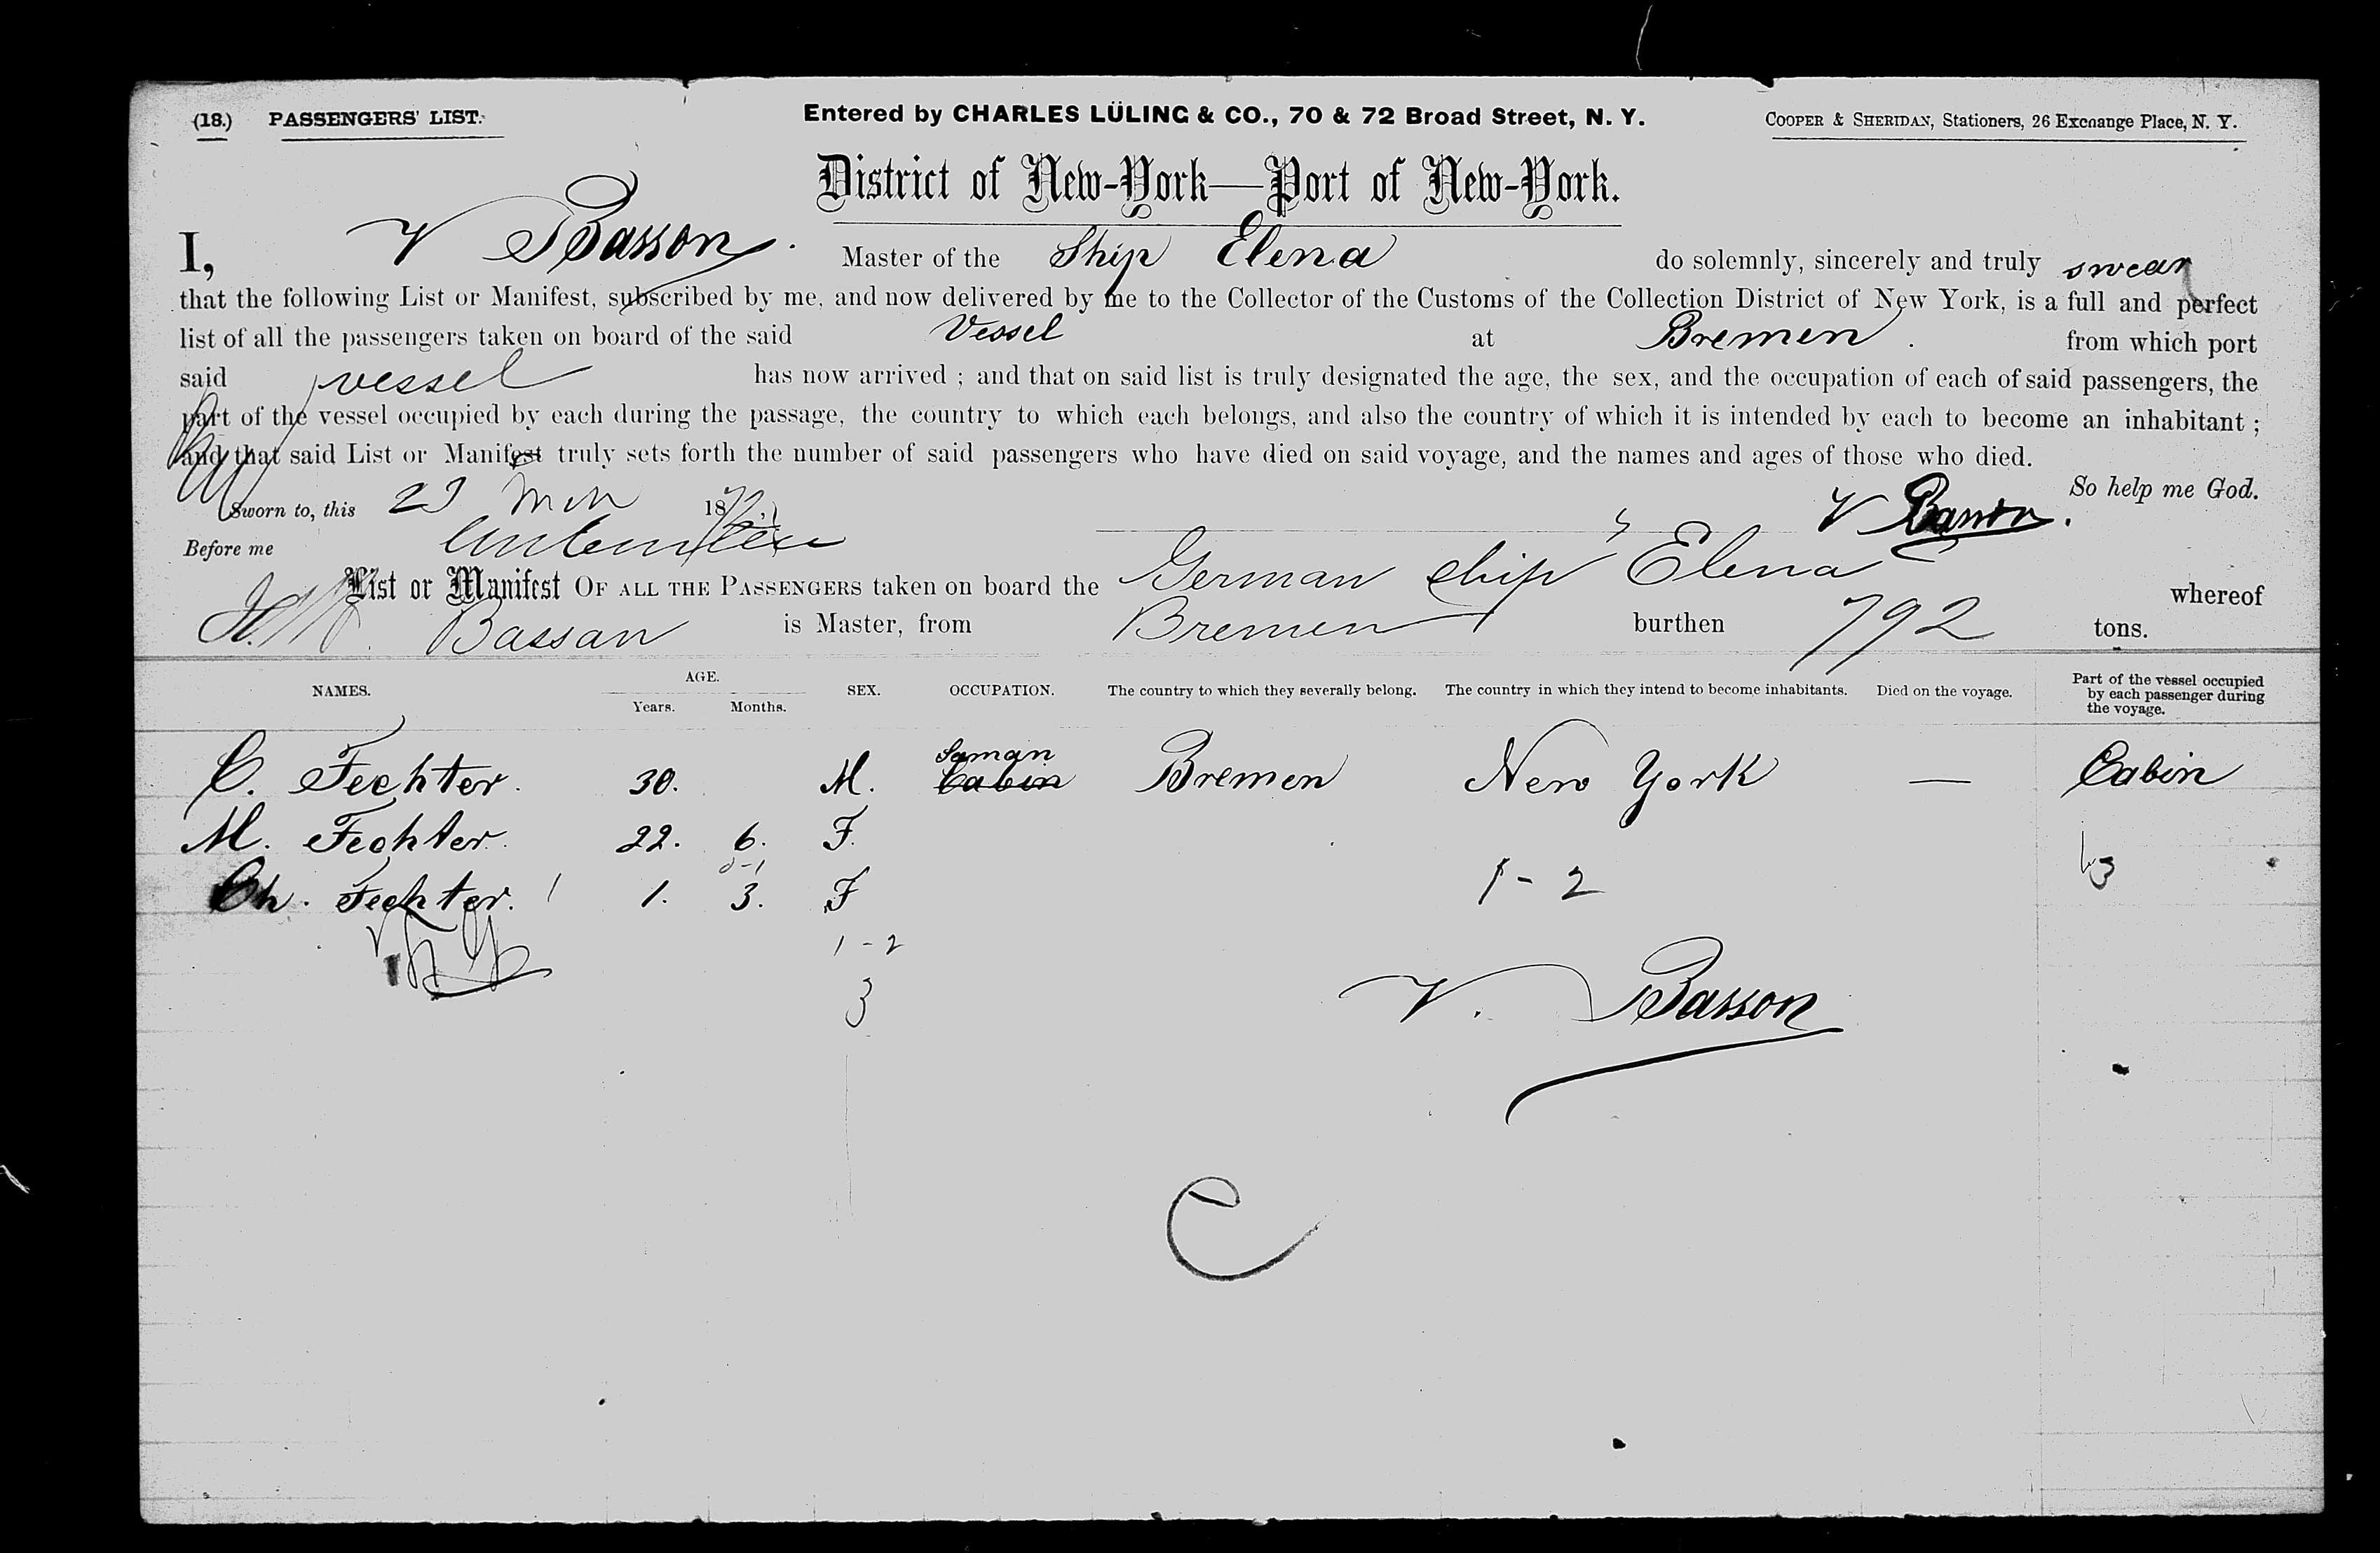 (18.) PASSENGERS' LIST. Entered by CHARLES LÜLING & CO., 70 & 72 Broad Street, N. Y. COOPER & SHERIDAN, Stationers, 26 Exchange Place, N. Y.
District of New-York—Port of New-York.
I, V Basson. Master of the Ship Elena do solemnly, sincerely and truly swear
that the following List or Manifest, subscribed by me, and now delivered by me to the Collector of the Customs of the Collection District of New York, is a full and perfect
list of all the passengers taken on board of the said Vessel at Bremen. from which port
said vessel has now arrived ; and that on said list is truly designated the age, the sex, and the occupation of each of said passengers, the
part of the vessel occupied by each during the passage, the country to which each belongs, and also the country of which it is intended by each to become an inhabitant ;
and that said List or Manifest truly sets forth the number of said passengers who have died on said voyage, and the names and ages of those who died.
So help me God.
Sworn to, this 23 187 V Basson.
Before me
List or Manifest OF ALL THE PASSENGERS taken on board the German ship Elena whereof
Bassan is Master, from Bremen burthen 792 tons.
NAMES. AGE. Years. Months. SEX. OCCUPATION. The country to which they severally belong. The country in which they intend to become inhabitants. Died on the voyage. Part of the vessel occupied by each passenger during the voyage.
C. Fechter. 30. M. Seman Cabin Bremen New York — Cabin
M. Fechter. 22. 6. F.
Ch. Fechter. 1. 3. F 1-2
1-2
3
V. Basson